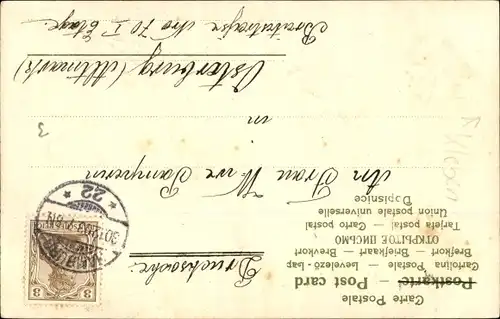 Carte Postale
Postkarte — Post card
Cartolina Postale — Levelező-Lap
Brefkort — Briefkaart — Brevkort
ОТКРЫТОЕ ПИСЬМО
Tarjeta postal — Carto postale
Union postale universelle
Dopisnice
Drucksache
An Frau Wwe
in
Osterburg (Altmark)
Breitestrasse Nro 70 I Etage.
3
HAMBURG
* 22 *
3 3